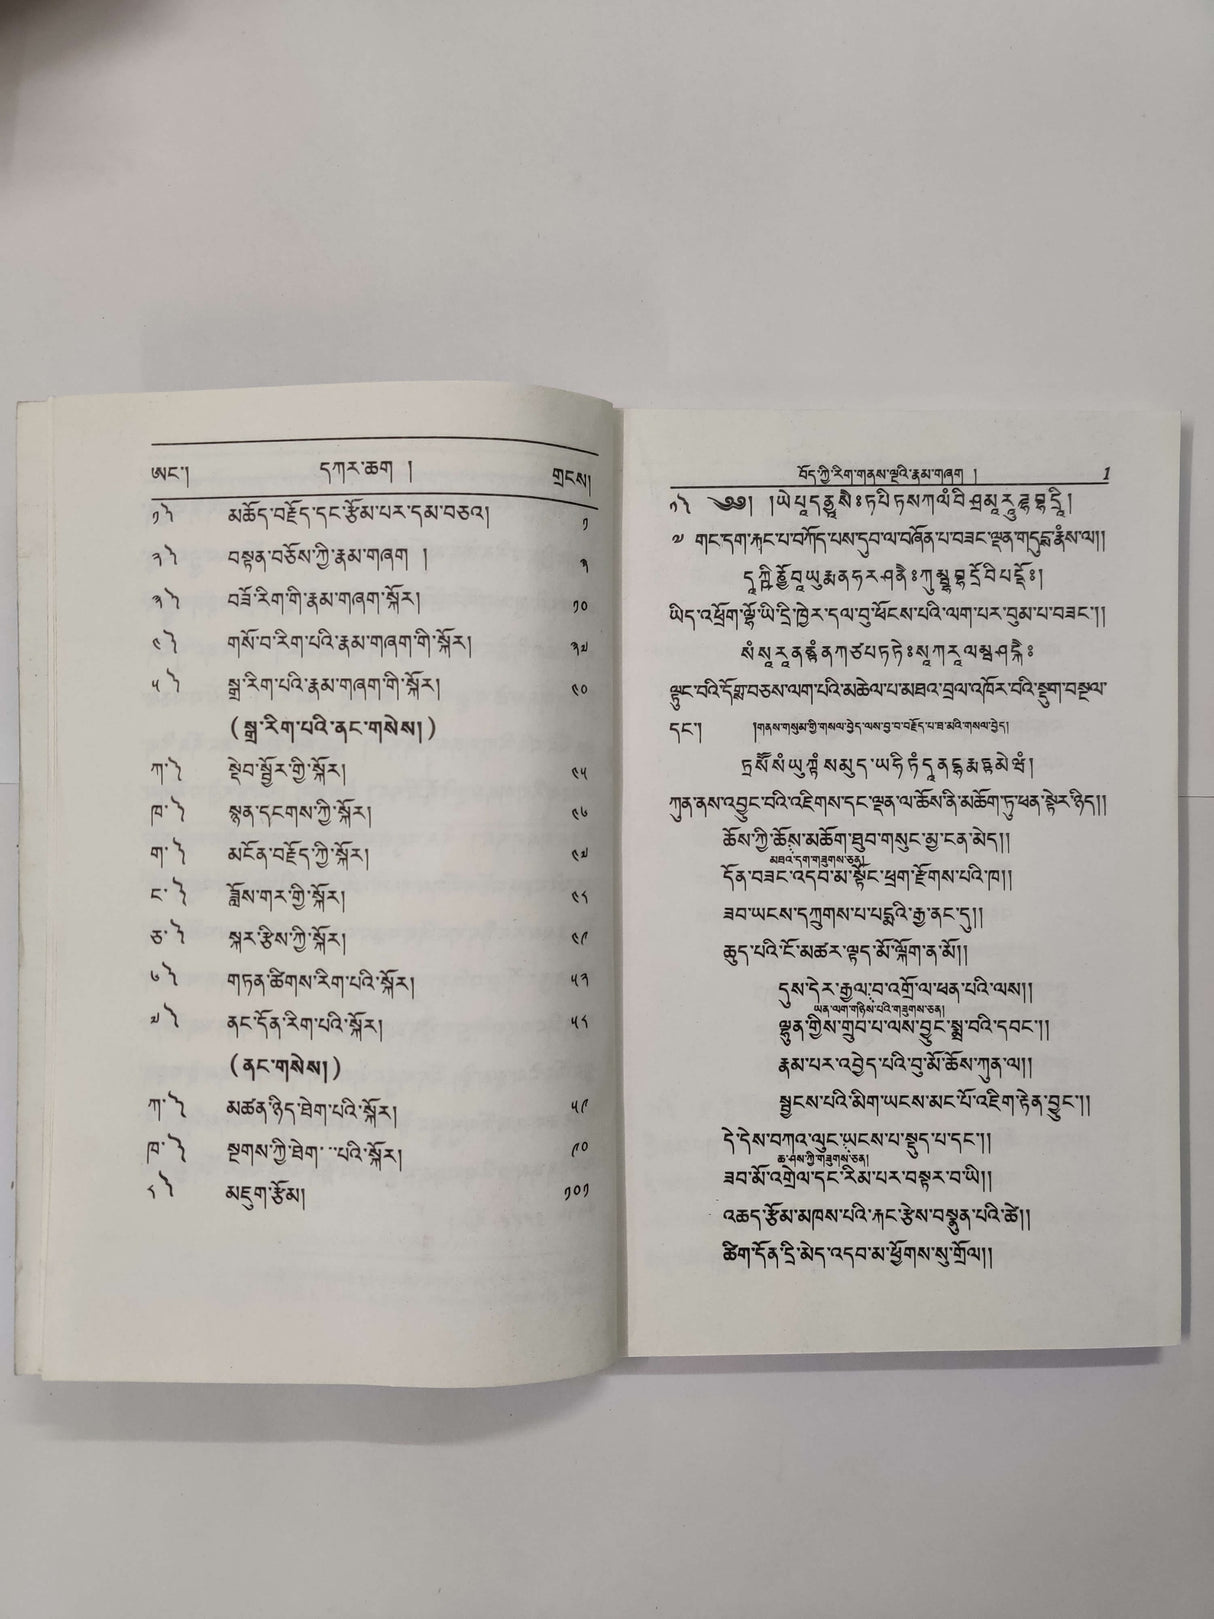 ཨང་།	དཀར་ཆག །	གྲངས།
༡༽	མཆོད་བརྗོད་དང་རྩོམ་པར་དམ་བཅའ།	༡
༢༽	བསྟན་བཅོས་ཀྱི་རྣམ་གཞག །	༣
༣༽	བཟོ་རིག་གི་རྣམ་གཞག་སྐོར།	༡༠
༤༽	གསོ་བ་རིག་པའི་རྣམ་གཞག་གི་སྐོར།	༢༧
༥༽	སྒྲ་རིག་པའི་རྣམ་གཞག་གི་སྐོར།	༤༠
(སྒྲ་རིག་པའི་ནང་གསེས།)
ཀ་༽	སྡེབ་སྦྱོར་གྱི་སྐོར།	༤༥
ཁ་༽	སྙན་དངགས་ཀྱི་སྐོར།	༤༦
ག་༽	མངོན་བརྗོད་ཀྱི་སྐོར།	༤༧
ང་༽	ཟློས་གར་གྱི་སྐོར།	༤༨
ཅ་༽	སྐར་རྩིས་ཀྱི་སྐོར།	༤༩
༦༽	གཏན་ཚིགས་རིག་པའི་སྐོར།	༥༢
༧༽	ནང་དོན་རིག་པའི་སྐོར།	༥༨
(ནང་གསེས།)
ཀ་༽	མཚན་ཉིད་ཐེག་པའི་སྐོར།	༥༩
ཁ་༽	སྔགས་ཀྱི་ཐེག་པའི་སྐོར།	༩༠
༨༽	མཇུག་རྩོམ།	༡༠༡
བོད་ཀྱི་རིག་གནས་ལྔའི་རྣམ་གཞག །	1
༡༽ ༄༅། །
༧ གང་དག་རྐང་པ་བཀོད་པས་དུབ་ལ་བཞོན་པ་བཟང་ལྡན་
ཡིད་འཕྲོག་ལྷོ་ཡི་དྲི་ཁྱེར་དལ་བུ་ཕོངས་པའི་ལག་པར་བུམ་པ་བཟང་།།
ལྟུང་བའི་དོགས་བཅས་ལག་པའི་མཆེལ་པ་མཐའ་བྲལ་འཁོར་བའི་སྡུག་བསྔལ་
དང་།	།གནས་གསུམ་གྱི་གསལ་བྱེད་ལས་བྱ་བ་བརྗོད་པ་ཐ་མའི་གསལ་བྱེད།
ཀུན་ནས་འབྱུང་བའི་འཇིགས་དང་ལྡན་ལ་ཆོས་ནི་མཆོག་ཏུ་ཕན་སྟེར་ཉིད།།
ཆོས་ཀྱི་ཆོས་མཆོག་ཐུབ་གསུང་མྱ་ངན་མེད།།
མཐའ་དག་གཟུགས་ཅན།
དོན་བཟང་འདབ་མ་སྟོང་ཕྲག་རྫོགས་པའི་ཁ།།
ཟབ་ཡངས་དཀྲུགས་པ་པདྨའི་རྒྱ་ནང་དུ།།
ཆུད་པའི་ངོ་མཚར་ལྟད་མོ་ལྐོག་ན་མོ།།
དུས་དེར་རྒྱལ་བ་འགྲོ་ལ་ཕན་པའི་ལས།།
ཡན་ལག་གཉིས་པའི་གཟུགས་ཅན།
ལྷུན་གྱིས་གྲུབ་པ་ལས་བྱུང་སྨྲ་བའི་དབང་།།
རྣམ་པར་འབྱེད་པའི་བུ་མོ་ཆོས་ཀུན་ལ།།
སྦྱངས་པའི་མིག་ཡངས་མང་པོ་འཇིག་རྟེན་བྱུང་།།
དེ་དེས་བཀའ་ལུང་ཡངས་པ་སྡུད་པ་དང་།།
ཆ་ཤས་ཀྱི་གཟུགས་ཅན།
ཟབ་མོ་འགྲེལ་དང་རིམ་པར་བསྟར་བ་ཡི།།
འཆད་རྩོམ་མཁས་པའི་རྐང་རྩེས་བསྣུན་པའི་ཚེ།།
ཚིག་དོན་དྲི་མེད་འདབ་མ་ཕྱོགས་སུ་གྲོལ།།